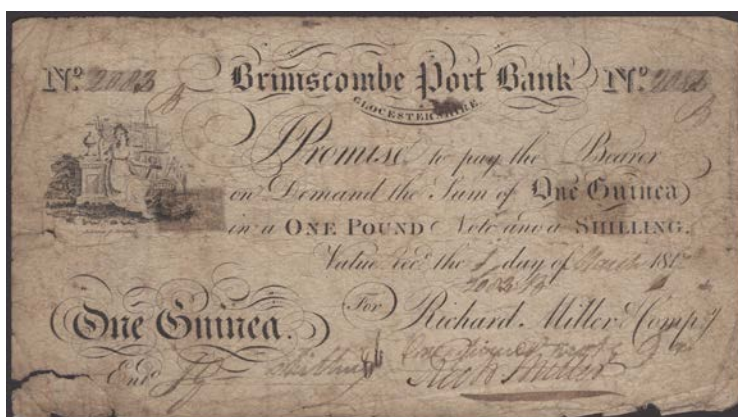 Nº 2003 Brimscombe Port Bank Nº
GLOCESTERSHIRE.
I Promise to pay the Bearer
on Demand the Sum of One Guinea
in a ONE POUND Note and a SHILLING.
Value rec.d the day of March 181
2003
One Guinea. For Richard Miller & Comp.y
Ent.d
Rich Miller